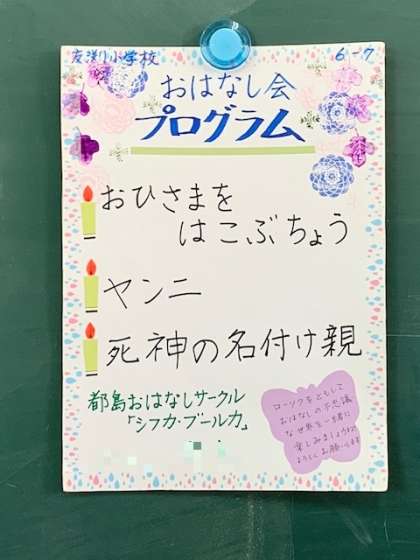 友渕小学校
6-7
おはなし会
プログラム
おひさまを
はこぶちょう
ヤンニ
死神の名付け親
都島おはなしサークル
「シフカ・ブールカ」
ローソクをともして
おはなしの不思議
な世界を一緒に
楽しみましょう
よろしくお願いします